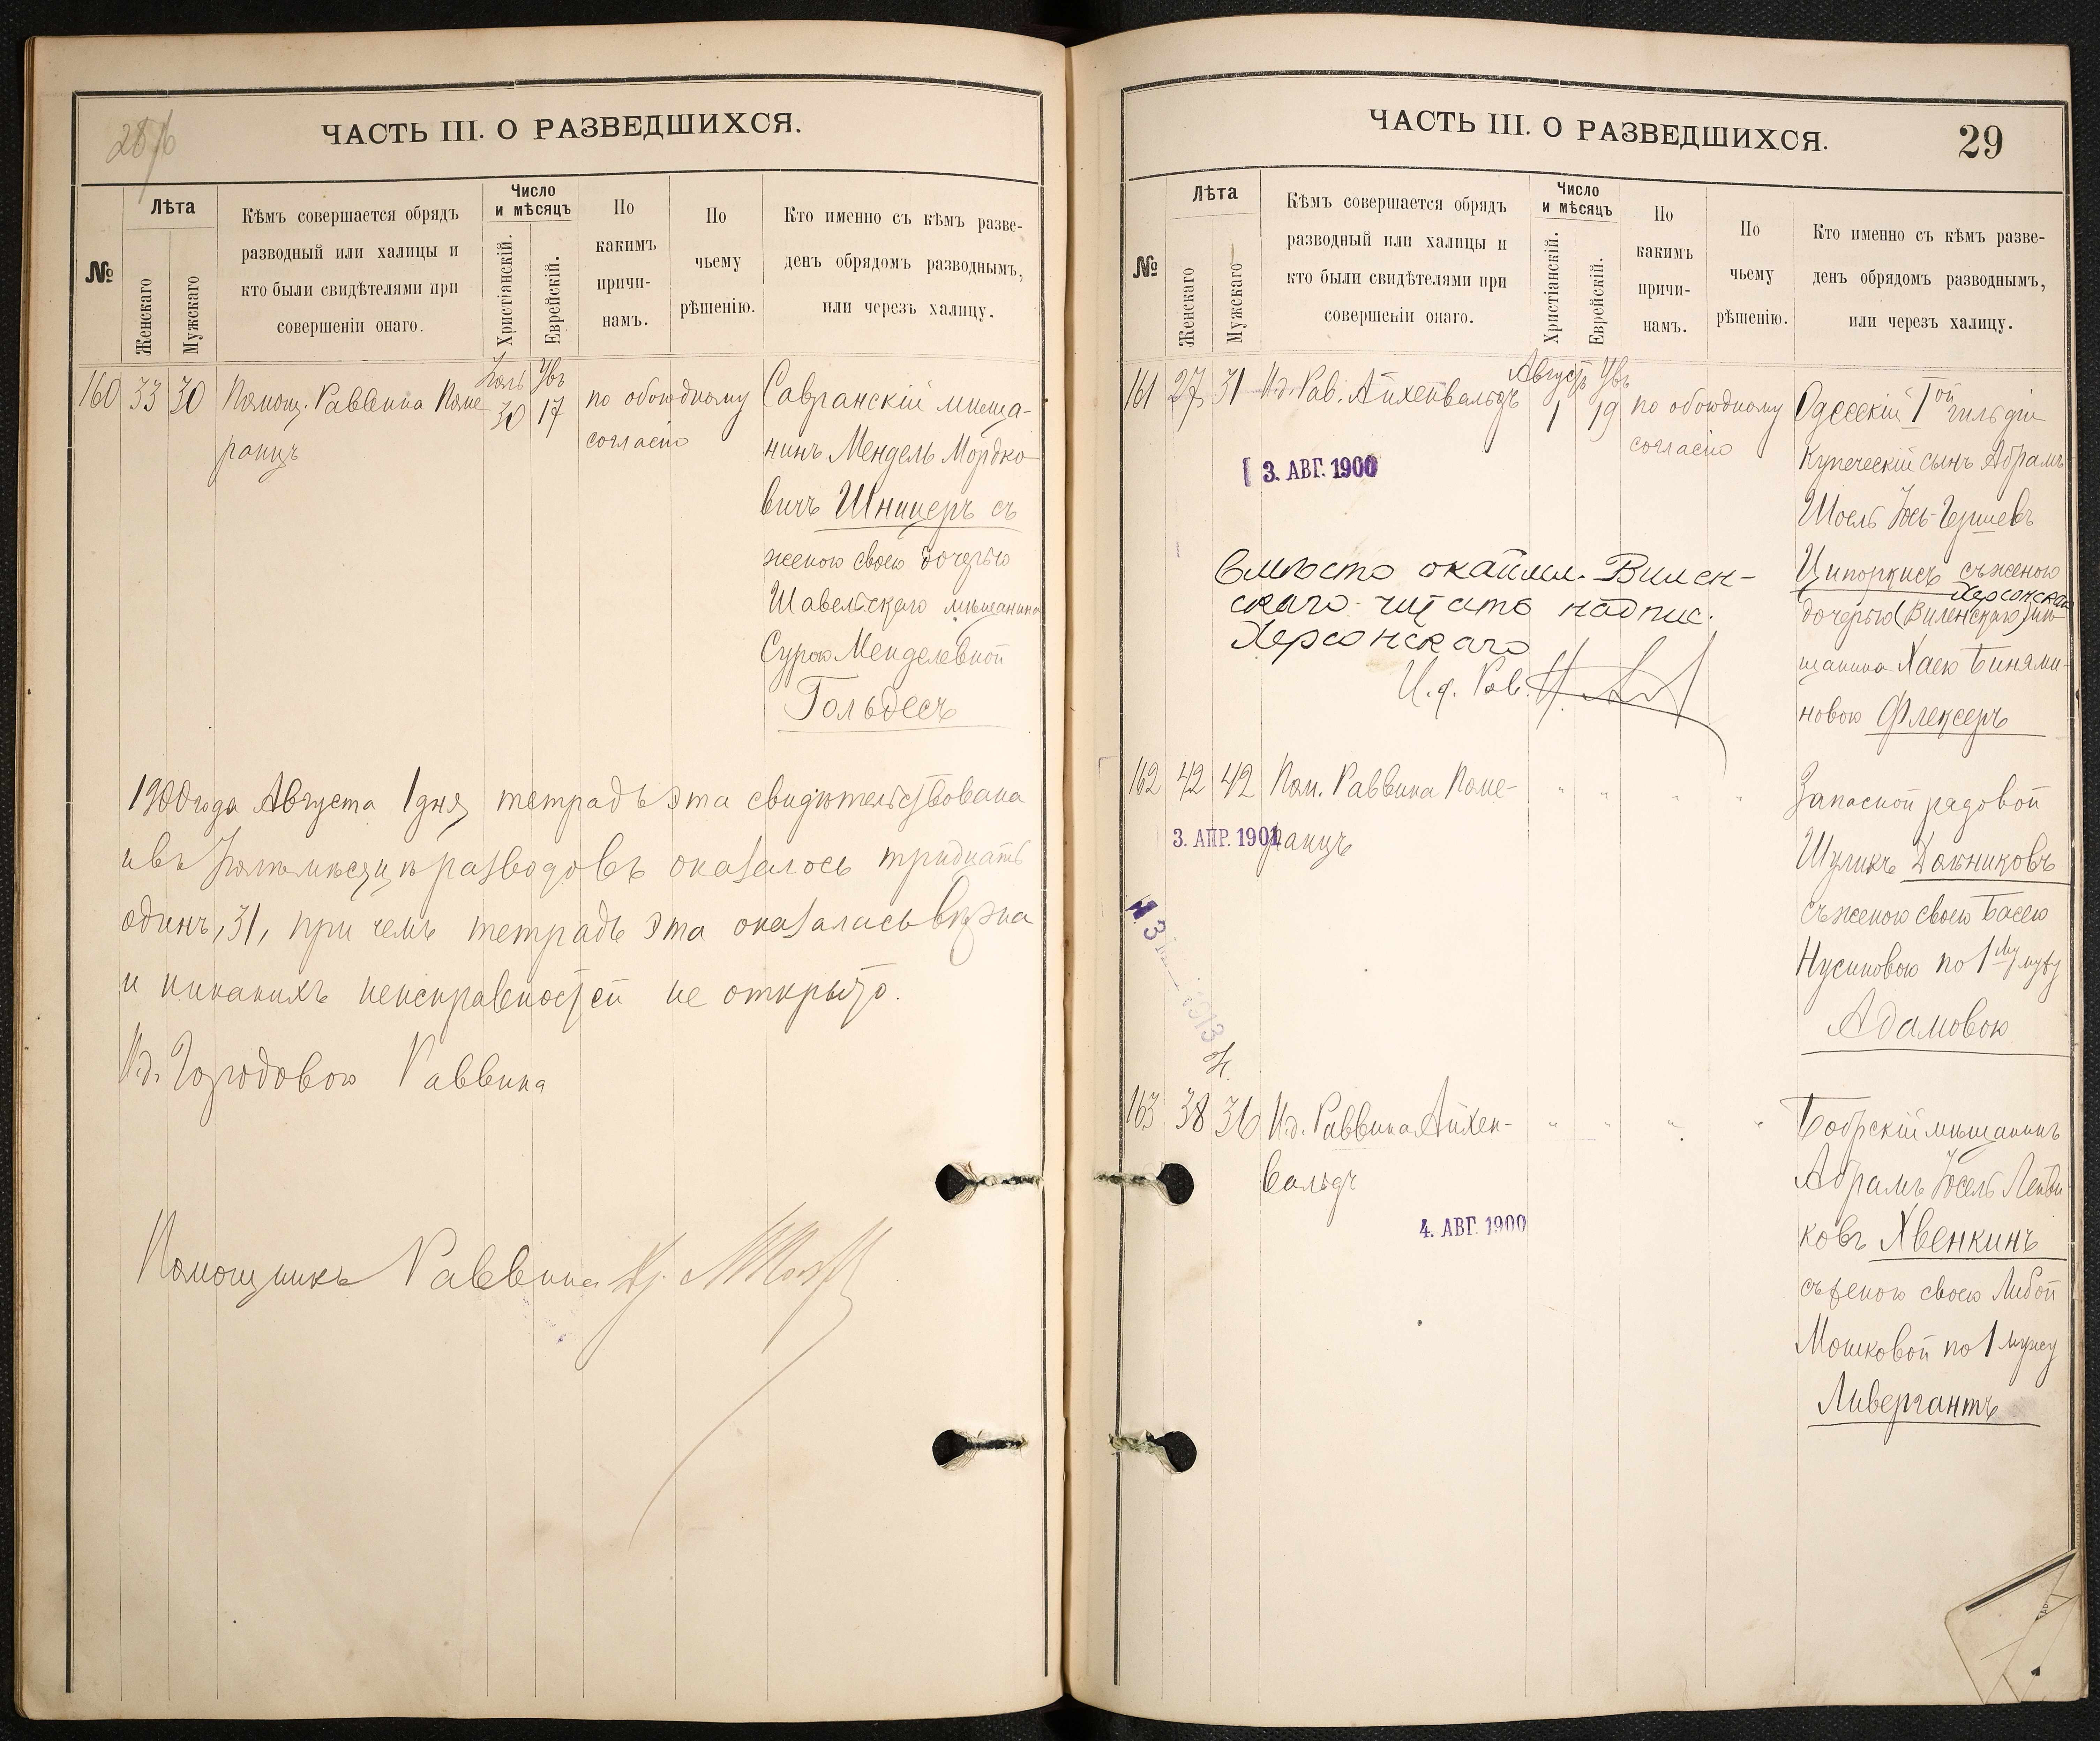 28/б
ЧАСТЬ III. О РАЗВЕДШИХСЯ.
№
Лѣта
Женскаго
Мужскаго
Кѣмъ совершается обрядъ
разводный или халицы и
кто были свидѣтелями при
совершеніи онаго.
Число
и мѣсяцъ
Христіанскій.
Еврейскій.
По
какимъ
причи-
намъ.
По
чьему
рѣшенію.
Кто именно съ кѣмъ разве-
денъ обрядомъ разводнымъ,
или черезъ халицу.
160 33 30 Помощ. Раввина Поме-
ранцъ
Іюль Увъ
30 17
по обоюдному
согласію
Савранскій мѣща-
нинъ Мендель Мордко-
вичъ Шницеръ съ
женою своею дочерью
Шавельскаго мѣщанина
Сурою Менделевной
Гольдесъ
1900 года Августа 1 дня тетрадь эта свидѣтельствована
и въ Іюлѣ мѣсяцѣ разводовъ оказалось тридцать
одинъ, 31, при чемъ тетрадь эта оказалась вѣрна
и никакихъ неисправностей не открыто.
И.д. Городового Раввина
Помощникъ Раввина
ЧАСТЬ III. О РАЗВЕДШИХСЯ.
29
№
Лѣта
Женскаго
Мужскаго
Кѣмъ совершается обрядъ
разводный или халицы и
кто были свидѣтелями при
совершеніи онаго.
Число
и мѣсяцъ
Христіанскій.
Еврейскій.
По
какимъ
причи-
намъ.
По
чьему
рѣшенію.
Кто именно съ кѣмъ разве-
денъ обрядомъ разводнымъ,
или черезъ халицу.
161 27 31 И.д. Рав. Айхенвальдъ
Августъ Увъ
1 19
по обоюдному
согласію
Одесскій 1ой гильдіи
Купеческій сынъ Абрамъ
Шоель Іось-Гершевъ
Ципоркисъ съ женою
Херсонскаго
дочерью (Виленскаго) мѣ-
щанина Хаею Бинями-
новою Флексеръ
3. АВГ. 1900
вмѣсто окаймл. Вилен-
скаго читать надпис.
Херсонскаго
И. д. Рав.
162 42 42 Пом. Раввина Поме-
ранцъ
" " " "
3. АПР. 1901
Запасной рядовой
Шулимъ Дольниковъ
съ женою своею Басею
Нусиновою по 1му мужу
Адамовою
163 38 36 И.д. Раввина Айхен-
вальдъ
" " " "
4. АВГ. 1900
Бобрскій мѣщанинъ
Абрамъ Іосель Лейби-
ковъ Хвенкинъ
съ женою своею Либой
Мошковой по 1 мужу
Ливергантъ